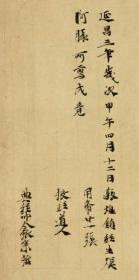 延昌三年歲次甲午四月十二日敦煌鎮經生張
阿勝所寫成竟
用帋廿一張
校經道人
典經帥令狐崇哲